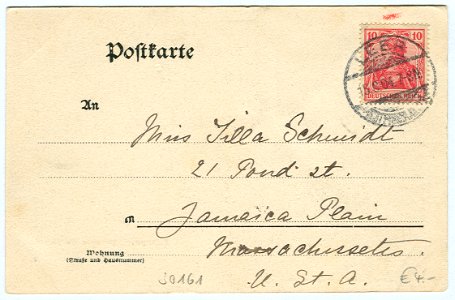 Postkarte
10 10
LEER
An
Miss Tilla Schmidt
21 Pond St.
in
Jamaica Plain
Wohnung
(Straße und Hausnummer)
Massachusetts.
U. St. A.
J0161
€4-